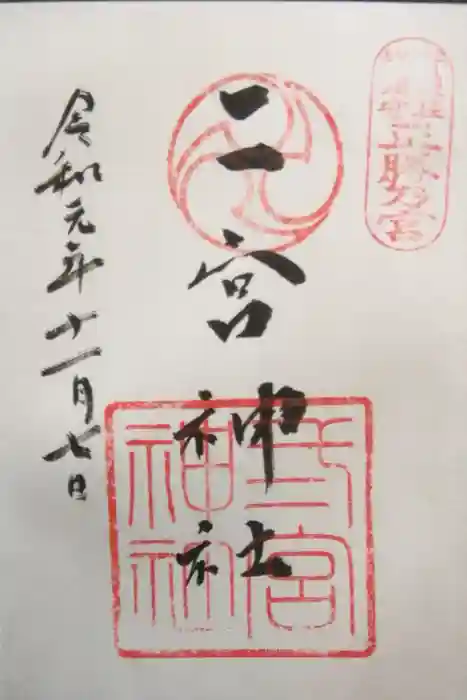 正勝乃宮
二宮神社
弍宮
神社
令和元年十一月七日